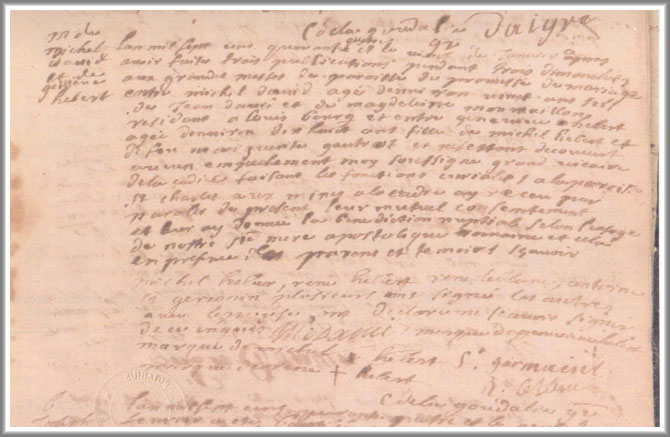 C de la goudalie Daigre
m de michel david et de genevieve hebert
Lan mil sept cens quarante quatre et le vint de Janvier apres
avoir faite trois publications pendant trois dimanches
aux grandes messes de paroisse de promesse de mariage
entre michel david agé denviron vint ans fils
de Jean david et de magdeleine
residant a louis bourg et entre genevieve hebert
agée denviron dix huit ans fille de michel hebert et
de feu marguerite gautrot et nestant decouvert
aucun empechement moy soussigné grand vicaire
de la cadie faisant les fonctions curiales a la paroisse
st charles aux mines a lacadie ay receu par
parolle de present leur mutuel consentement
et leur ay donné la benediction nuptiale selon lusage
de nostre ste mere apostolique romaine et cela
en presence des parens et temoins scavoir
michel hebert, rene hebert rene leblanc, antoine
st germain plusieurs ont signé les autres
avec lepouse, on declare ne scavoir signer
de ce enquis M david marque de genevieve hebert
marque de michel + hebert St germain
marque de rene + hebert R leblanc
C de la goudalie gv
Lan mil sept cens quarante quatre et le